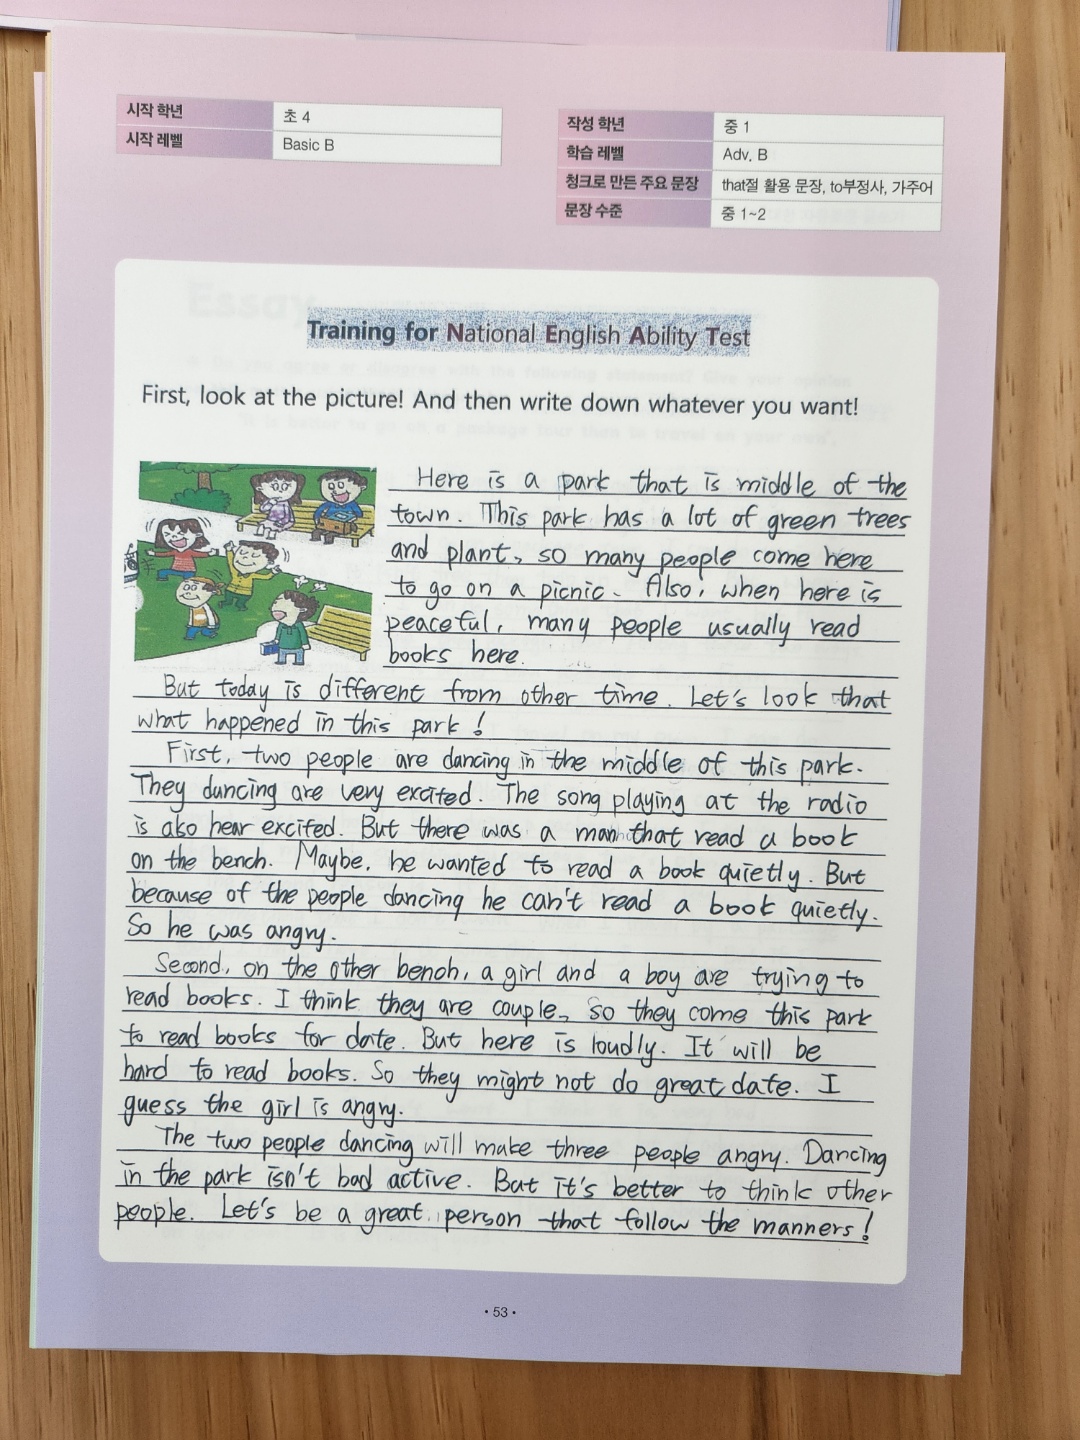 시작 학년 초 4
시작 레벨 Basic B
작성 학년 중 1
학습 레벨 Adv. B
청크로 만든 주요 문장 that절 활용 문장, to부정사, 가주어
문장 수준 중 1~2
Training for National English Ability Test
First, look at the picture! And then write down whatever you want!
Here is a park that is middle of the
town. This park has a lot of green trees
and plant, so many people come here
to go on a picnic. Also, when here is
peaceful, many people usually read
books here.
But today is different from other time. Let's look that
what happened in this park!
First, two people are dancing in the middle of this park.
They dancing are very excited. The song playing at the radio
is also hear excited. But there was a man that read a book
on the bench. Maybe, he wanted to read a book quietly. But
because of the people dancing he can't read a book quietly.
So he was angry.
Second, on the other bench, a girl and a boy are trying to
read books. I think they are couple, so they come this park
to read books for date. But here is loudly. It will be
hard to read books. So they might not do great date. I
guess the girl is angry.
The two people dancing will make three people angry. Dancing
in the park isn't bad active. But it's better to think other
people. Let's be a great person that follow the manners!
• 53 •